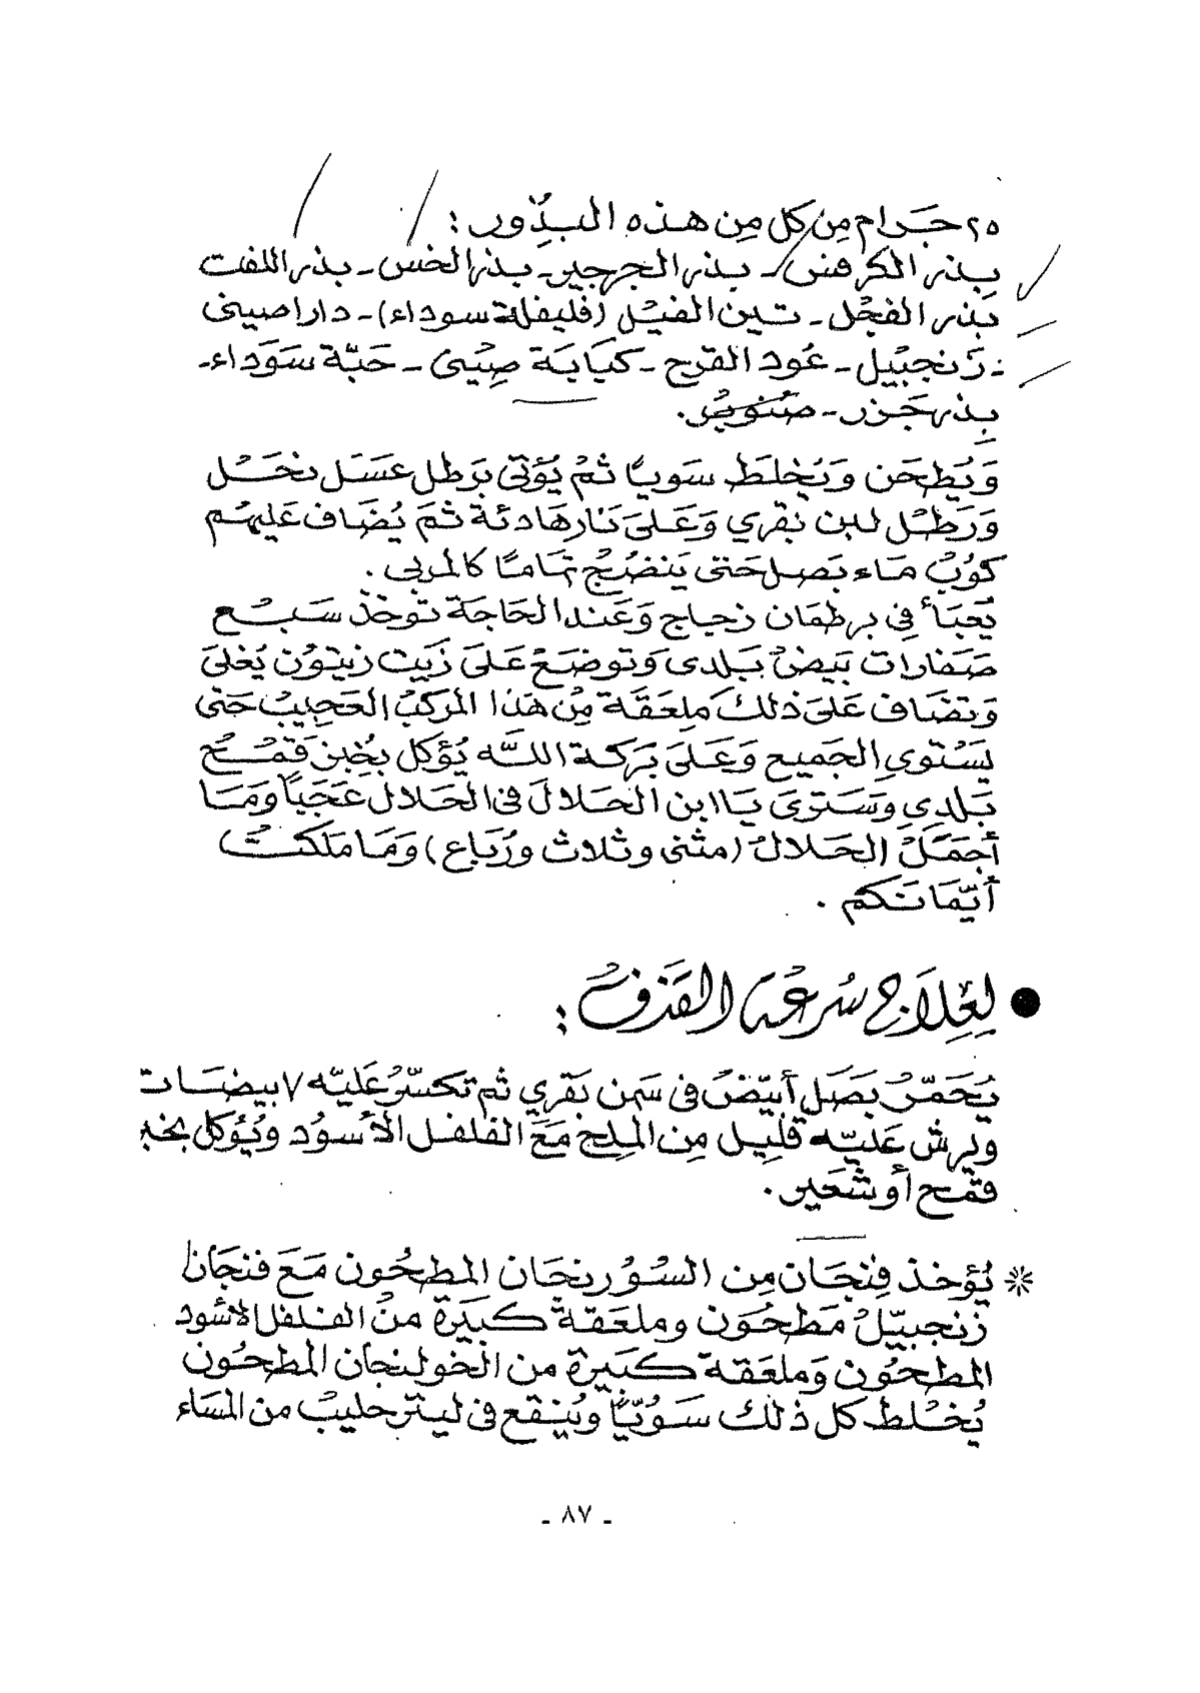 ٢٥ جَرام مِن كل مِن هذه البذُور :
بِذر الكرفس - بذر الجرجير - بذر الخس - بذر اللفت
بذر الفجْل - تين الفيْل (فليفلة سوداء) - دارا صيني
- زَنجبيْل - عُود القرح - كبَابَة صِيْني - حَبّة سَوَداء -
بِذر جَزر - صنُوبرْ.
وَيُطحَن وَيُخلَط سَويًا ثمْ يُؤتى بَرطل عسَل نحَل
وَرَطْل لبن بقري وَعَلىَ نَار هَادئة ثمَ يُضَاف عَليهُم
كوُبْ مَاء بَصل حَتى يَنضُج تمَامًا كالمربى .
يُعبَأ في برطمَان زجاج وَعَند الحَاجَة تؤخذ سَبْع
صَفارات بَيضْ بَلدى وَتوضَعْ عَلىَ زَيت زيتوُن يُغلىَ
وَتضَاف عَلىَ ذلكَ مِلعَقَة مِن هَذا المركبْ العَجيبْ حَتى
يَسْتوي الجَميع وَعَلىَ بَركة اللَّه يُؤكل بخُبز قَمْحُ
بَلدِي وَسَترىَ يَا ابن الحَلال في الحَلال عَجَبًا وَمَا
أجمَلْ الحَلالْ (مثنى وثلاث ورُبَاع) وَمَا مَلكتْ
أيّمَانَكم .
● لِعِلاَج سُرعْة القَذفْ :
يُحَمّرْ بَصَل أبيّضْ في سَمن بَقري ثم تكسّرْ عَليّه ٧ بيضَات
ويرش عَليّه قليل مِن الملِح مَعَ الفلفل الأسوُد ويُؤكل بخبز
قمْح أو شَعَير .
* يُؤخذ فِنجَان مِن السُوُرنجَان المطحُون مَعَ فنجَان
زَنجبيّلْ مَطحُوَن وملعَقة كبَيَرة منْ الفلفل الأسُود
المطحُون وَملعَقة كَبَيرة من الخولنجان المطحُون
يُخْلط كل ذلك سَوُيّاً ويُنقع في ليتر حليبْ من المسَاء
- ٨٧ -